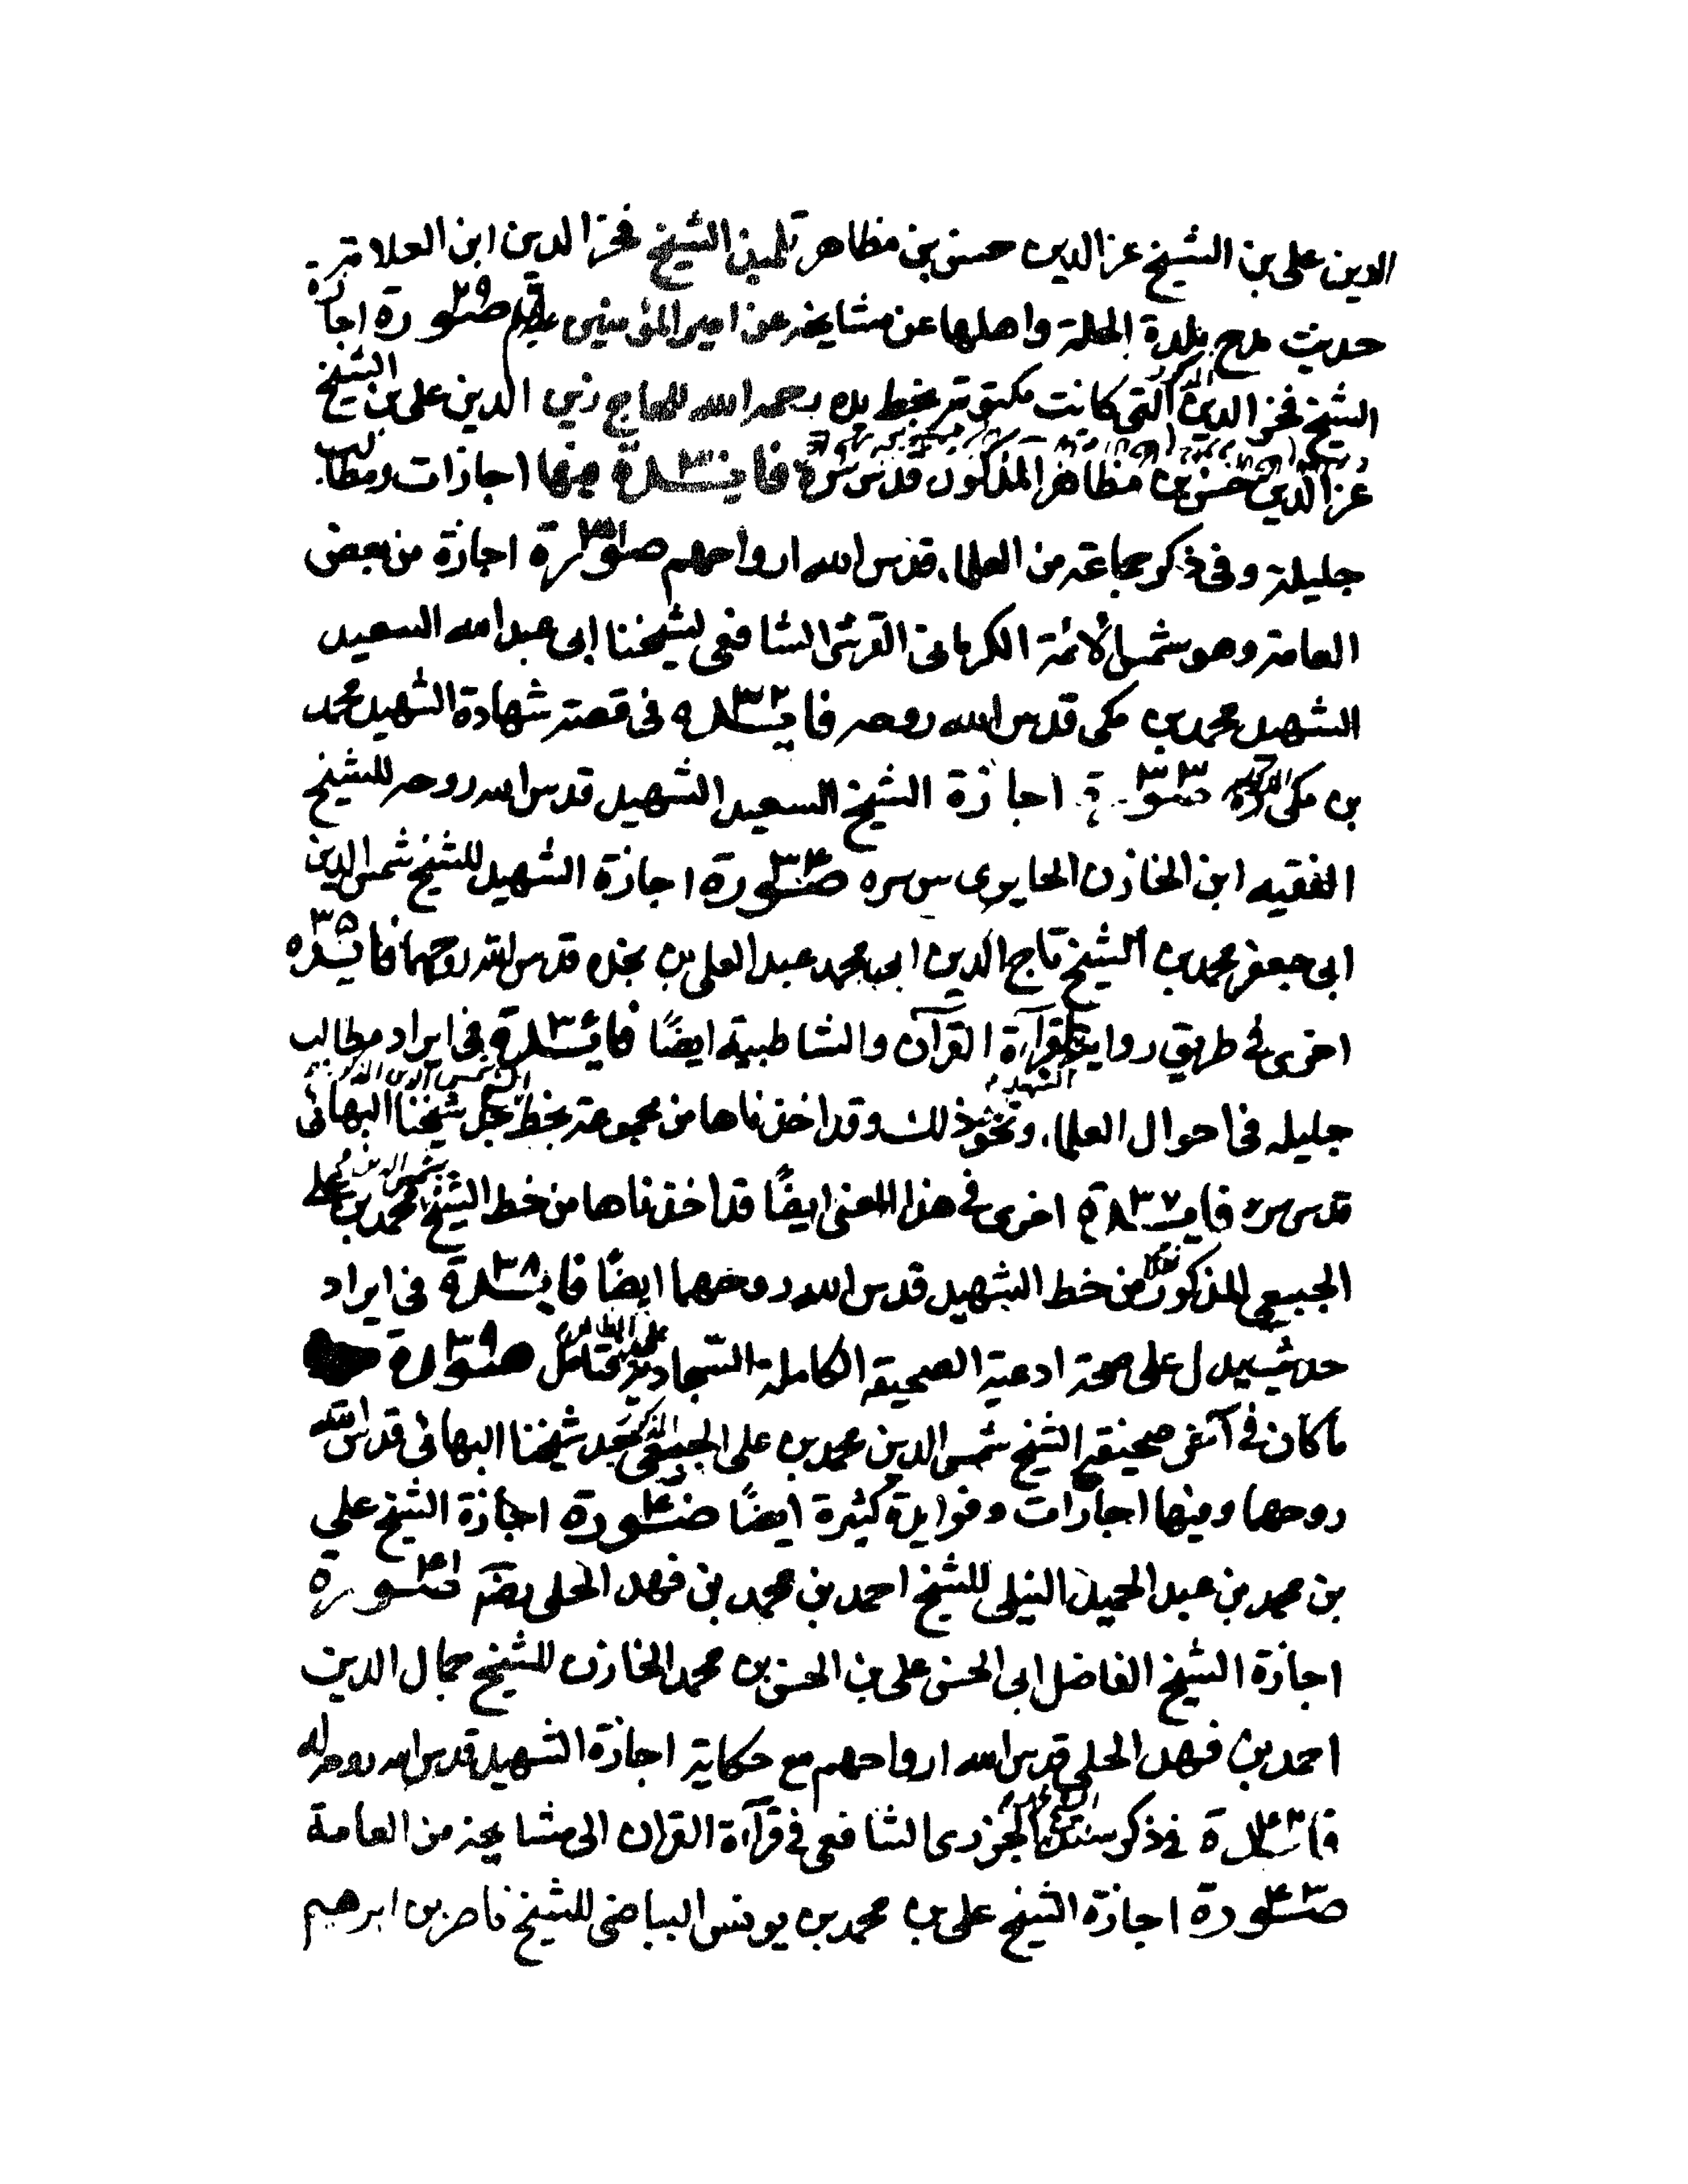 الدين على بن الشيخ عز الدين حسن بن مظاهر تلميذ الشيخ فخر الدين ابن العلامة
حديث مدح بلدة الحلة واهلها عن مشايخه عن امير المؤمنين صورة ٢٩ اجازة
الشيخ فخر الدين التى كانت مكتوبة بخط يده رحمه الله للحاج زين الدين على بن الشيخ
عز الدين حسن بن مظاهر المذكور قدس سره فايدة ٣٠ فيها اجازات ومطالب
جليلة وفى ذكر جماعة من العلماء قدس الله ارواحهم صورة ٣١ اجازة من بعض
العامة وهو شمس الأئمة الكرمانى القرشى الشافعى لشيخنا ابى عبد الله السعيد
الشهيد محمد بن مكى قدس الله روحه فايدة ٣٢ فى قصة شهادة الشهيد محمد
بن مكى صورة ٣٣ اجازة الشيخ السعيد الشهيد قدس الله روحه للشيخ
الفقيه ابن الخازن الحايرى س سره صورة ٣٤ اجازة الشهيد للشيخ شمس الدين
ابى جعفر محمد بن الشيخ تاج الدين ابى محمد عبد العلى بن نجده قدس الله روحهما فايدة ٣٥
اخرى فى طريق رواية الشهيد لقراءة القرآن والشاطبية ايضًا فايدة ٣٦ فى ايراد مطالب
جليله فى احوال العلماء ونحو ذلك وقد اخذناها من مجموعة بخط الشيخ شمس الدين جد شيخنا البهائى
قدس سره فايدة ٣٧ اخرى فى هذا المعنى ايضًا قد اخذناها من خط الشيخ شمس الدين محمد بن على
الجبعى المذكور نقلا من خط الشهيد قدس الله روحهما ايضًا فايدة ٣٨ فى ايراد
حديث يدل على صحة ادعية الصحيفة الكاملة السجادية فتأمل صورة ٣٩
ما كان فى آخر صحيفة الشيخ شمس الدين محمد بن على الجبعى المذكور جد شيخنا البهائى قدس الله
روحهما وفيها اجازات وفوايد كثيرة ايضًا صورة ٤٠ اجازة الشيخ على
بن محمد بن عبد الحميد النيلى للشيخ احمد بن محمد بن فهد الحلى صورة ٤١
اجازة الشيخ الفاضل ابى الحسن على بن الحسن بن محمد الخازن للشيخ جمال الدين
احمد بن فهد الحلى قدس الله ارواحهم مع حكاية اجازة الشهيد قدس الله روحه له
فائدة ٤٢ فى ذكر سند الجزرى الشافعى فى قرآءة القران الى مشايخه من العامة
صورة ٤٣ اجازة الشيخ على بن محمد بن يونس البياضى للشيخ ناصر بن ابرهيم